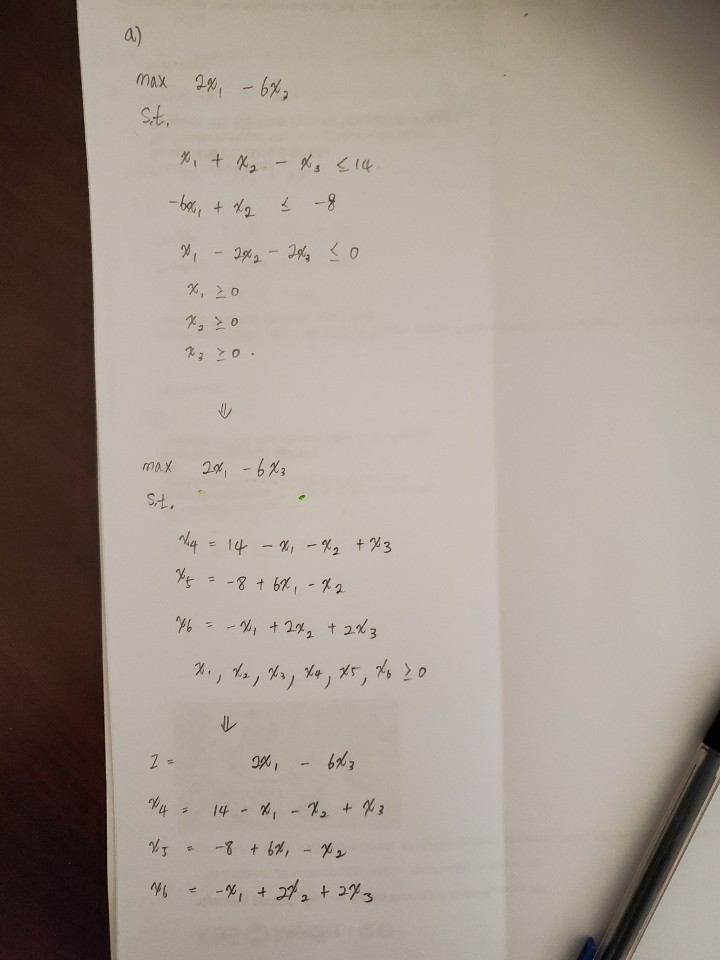 a)
max 2x₁ - 6x₂
s.t.
x₁ + x₂ - x₃ ≤ 14
-6x₁ + x₂ ≤ -8
x₁ - 2x₂ - 2x₃ ≤ 0
x₁ ≥ 0
x₂ ≥ 0
x₃ ≥ 0.
⇓
max 2x₁ - 6x₃
s.t.
x₄ = 14 - x₁ - x₂ + x₃
x₅ = -8 + 6x₁ - x₂
x₆ = -x₁ + 2x₂ + 2x₃
x₁, x₂, x₃, x₄, x₅, x₆ ≥ 0
⇓
Z = 2x₁ - 6x₃
x₄ = 14 - x₁ - x₂ + x₃
x₅ = -8 + 6x₁ - x₂
x₆ = -x₁ + 2x₂ + 2x₃